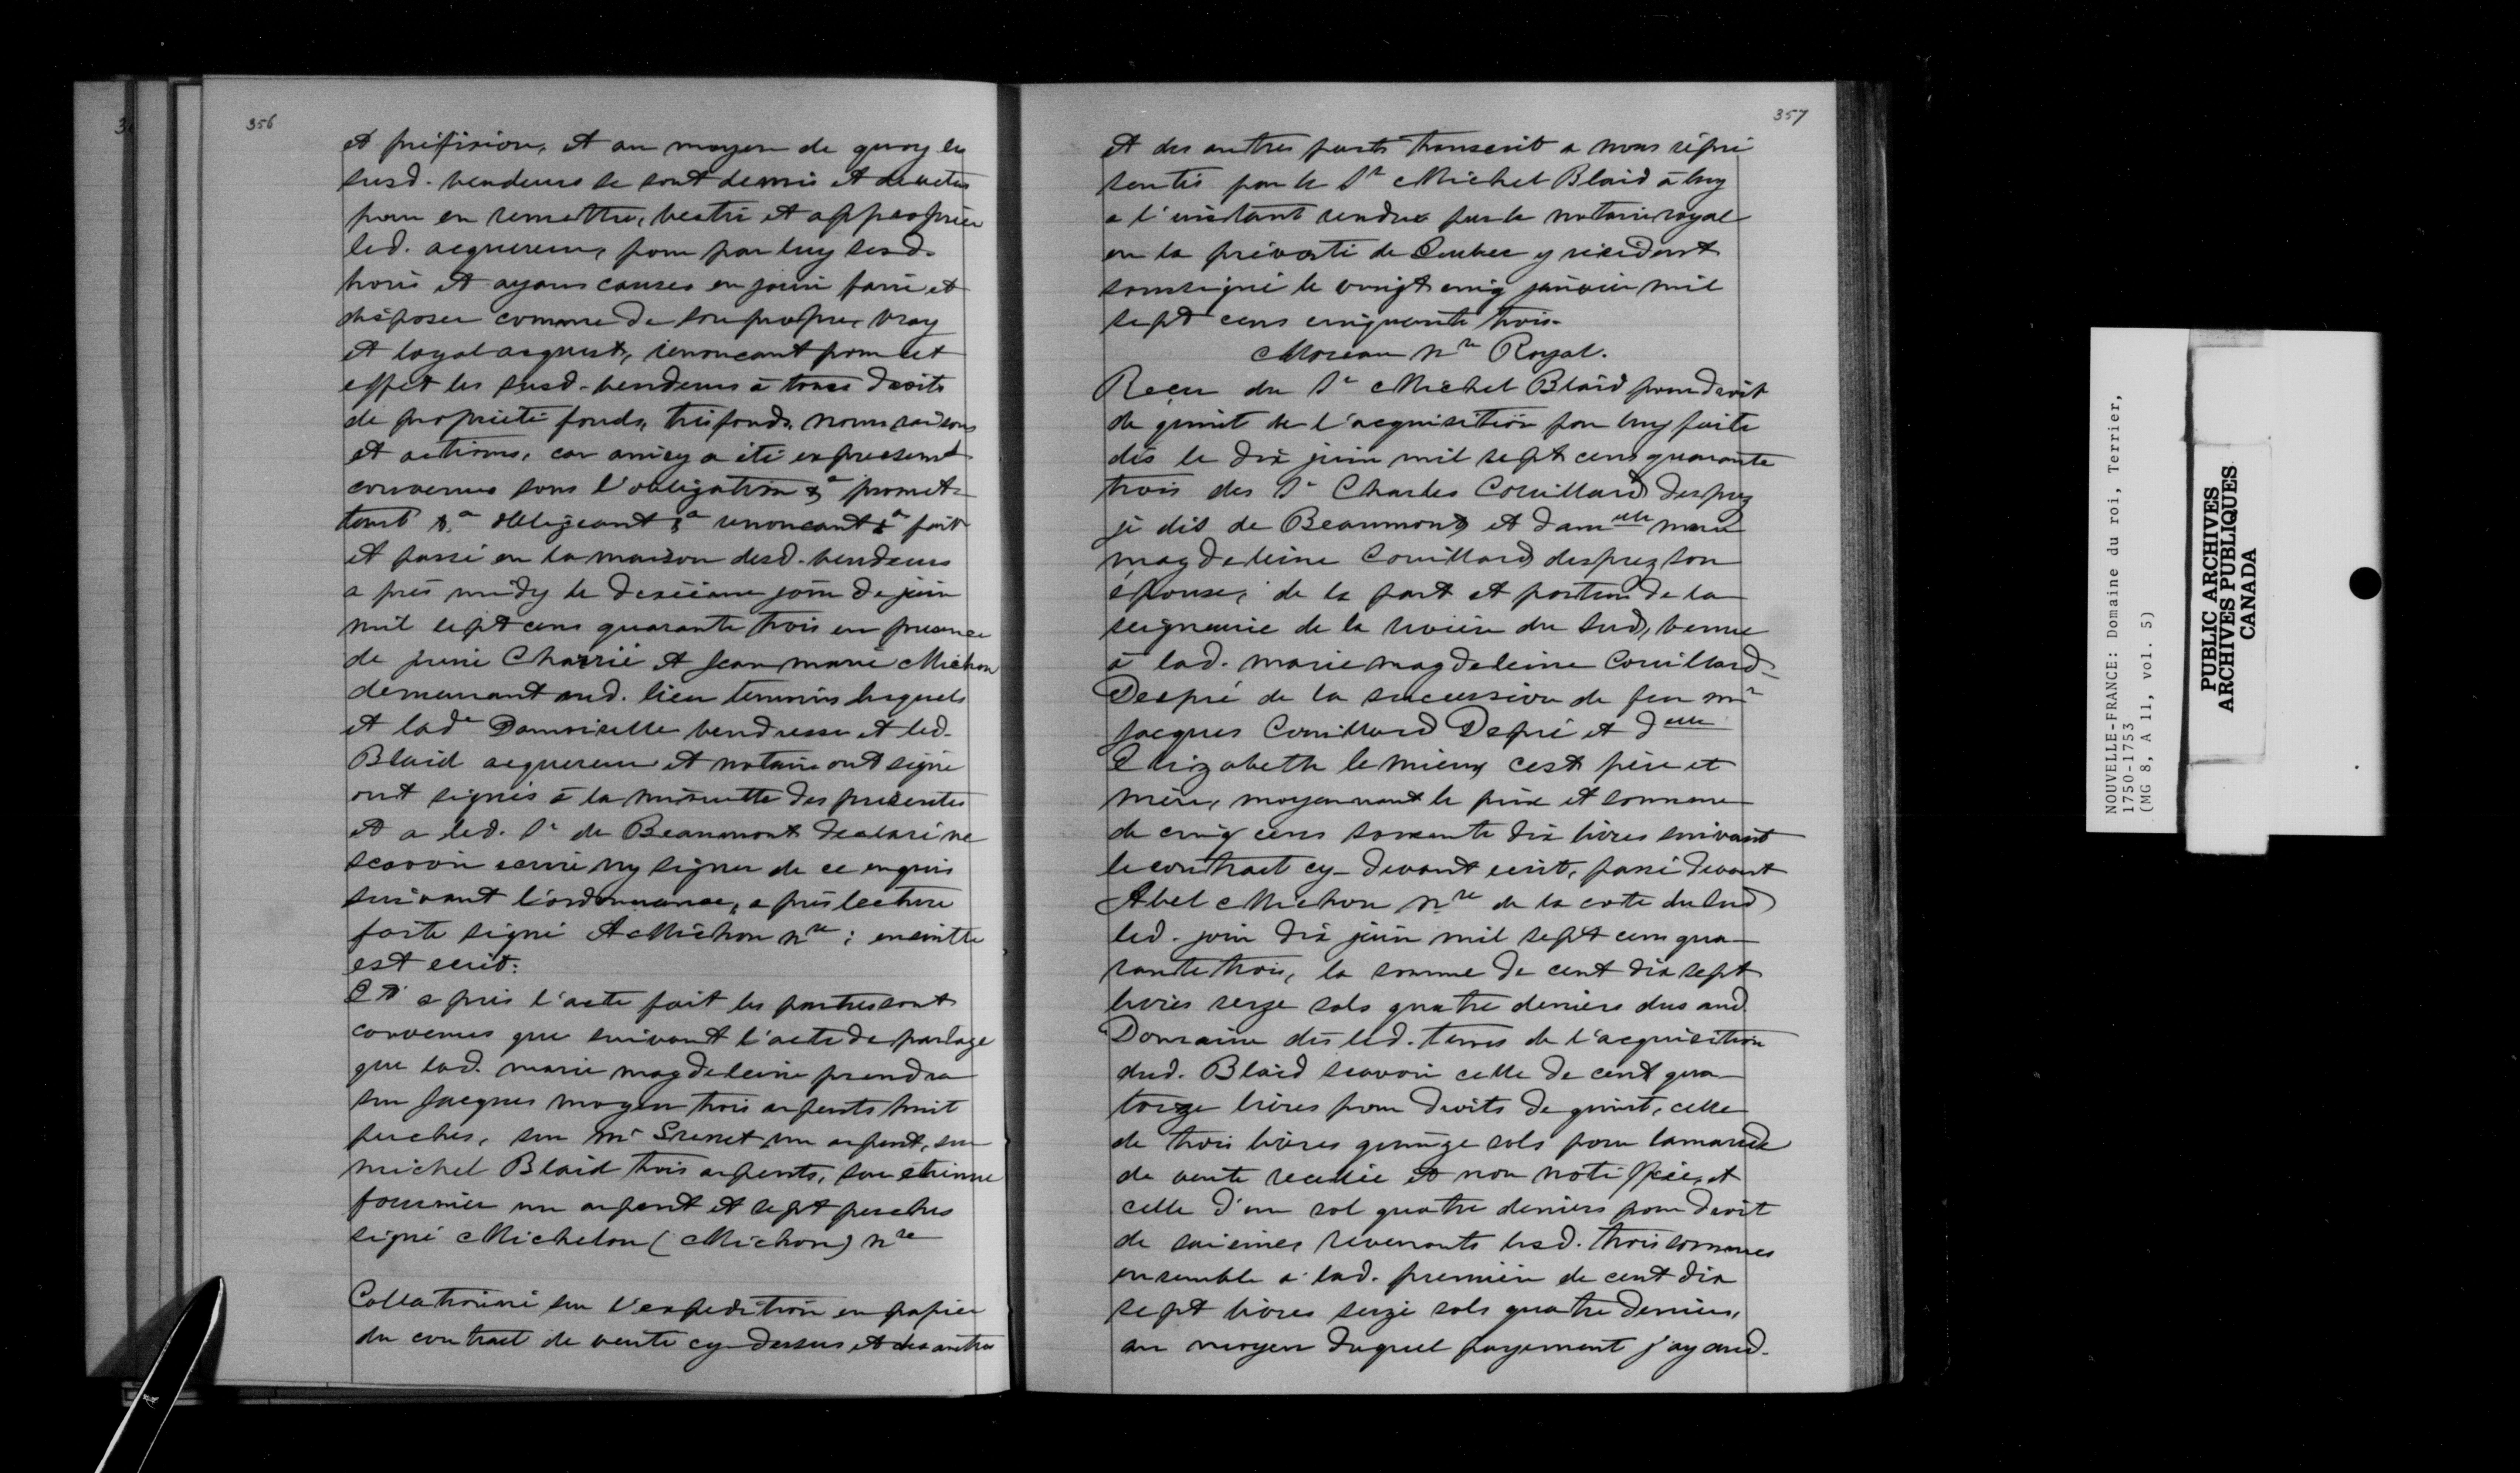 356
et préfixion, et au moyen de quoy les
susd. vendeurs se sont demis et devetus
pour en remettre, vestir et approprier
led. acquereur, pour par luy sesd.
hoirs et ayans causes en jouir faire et
disposer comme de son propre, vray
et loyal acquest, renoncant pour cet
effet les susd. vendeurs à tous droits
de proprieté fonds, trésfonds, noms raisons
et actions, car ainsy a été expressemt
convenus sous l'obligation &a promet-
tant &a obligeant &a renoncant &a fait
et passé en la maison desd. vendeurs
a prés midy le dexiéme jour de juin
mil sept cens quarante trois en presence
de piere Charrié et Jean marie Michon
demeurant aud. lieu temoins lesquels
et lade Damoiselle vendresse et led.
Blaid acquereur et notaire ont signé
ont signés à la minutte des présentes
et a led. Sr de Beaumont declaré ne
scavoir ecrire ny signer de ce enquis
suivant l'ordonnance, a prés lecture
faite signé A Michon nre; ensuitte
est ecrit:
Et a prés l'acte fait les parties sont
convenus que suivant l'acte de partage
que lad. marie magdeleine prendra
sur Jacques moyen trois arpents huit
perches, sur mr un arpent, sur
michel Blaid trois arpents, sur etienne
fournier un arpent et sept perches
signé Michelon (Michon) nre
Collationné sur l'expedition en papier
du contract de vente cy dessus et des autres
357
et des autres parts transcrit a nous répré
sentés par le Sr Michel Blaid à luy
a l'instant rendus par le notaire royal
en la prévosté de Quebec y résident
soussigné le vingt cinq janvier mil
sept cens cinquante trois.
Moreau nre Royal.
Reçu du Sr Michel Blaid pour droit
de quint de l'acquisition par luy faite
dés le dix juin mil sept cens quarante
trois des Sr Charles Couillard Desprez
je dis de Beaumont, et damelle marie
magdeleine Couillard desprez son
épouse, de la part et portion de la
seigneurie de la riviere du Sud, venue
à lad. marie magdeleine Couillard-
Després de la succession de feu mr
Jacques Couillard Depré et delle
Elizabeth le mieux cest pére et
mére, moyennant le prix et somme
de cinq cens soixante dix livres suivant
le contract cy-devant ecrit, passé devant
Abel Michon nre de la cote du Sud
led. jour dix juin mil sept cens qua-
rante trois, la somme de cent dix sept
livres seize sols quatre deniers dus aud.
Domaine dés led. tems de l'acquisition
dud. Blaid scavoir celle de cent qua-
torze livres pour droits de quint, celle
de trois livres quinze sols pour lamande
de vente recelée et non notiffiée, et
celle d'un sol quatre deniers pour droit
de saisines revenants lesd. trois sommes
ensemble a lad. premiére de cent dix
sept livres seize sols quatre deniers,
au moyen duquel payement j'ay aud.
NOUVELLE-FRANCE: Domaine du roi, Terrier,
1750-1753
(MG 8, A 11, vol. 5)
PUBLIC ARCHIVES
ARCHIVES PUBLIQUES
CANADA